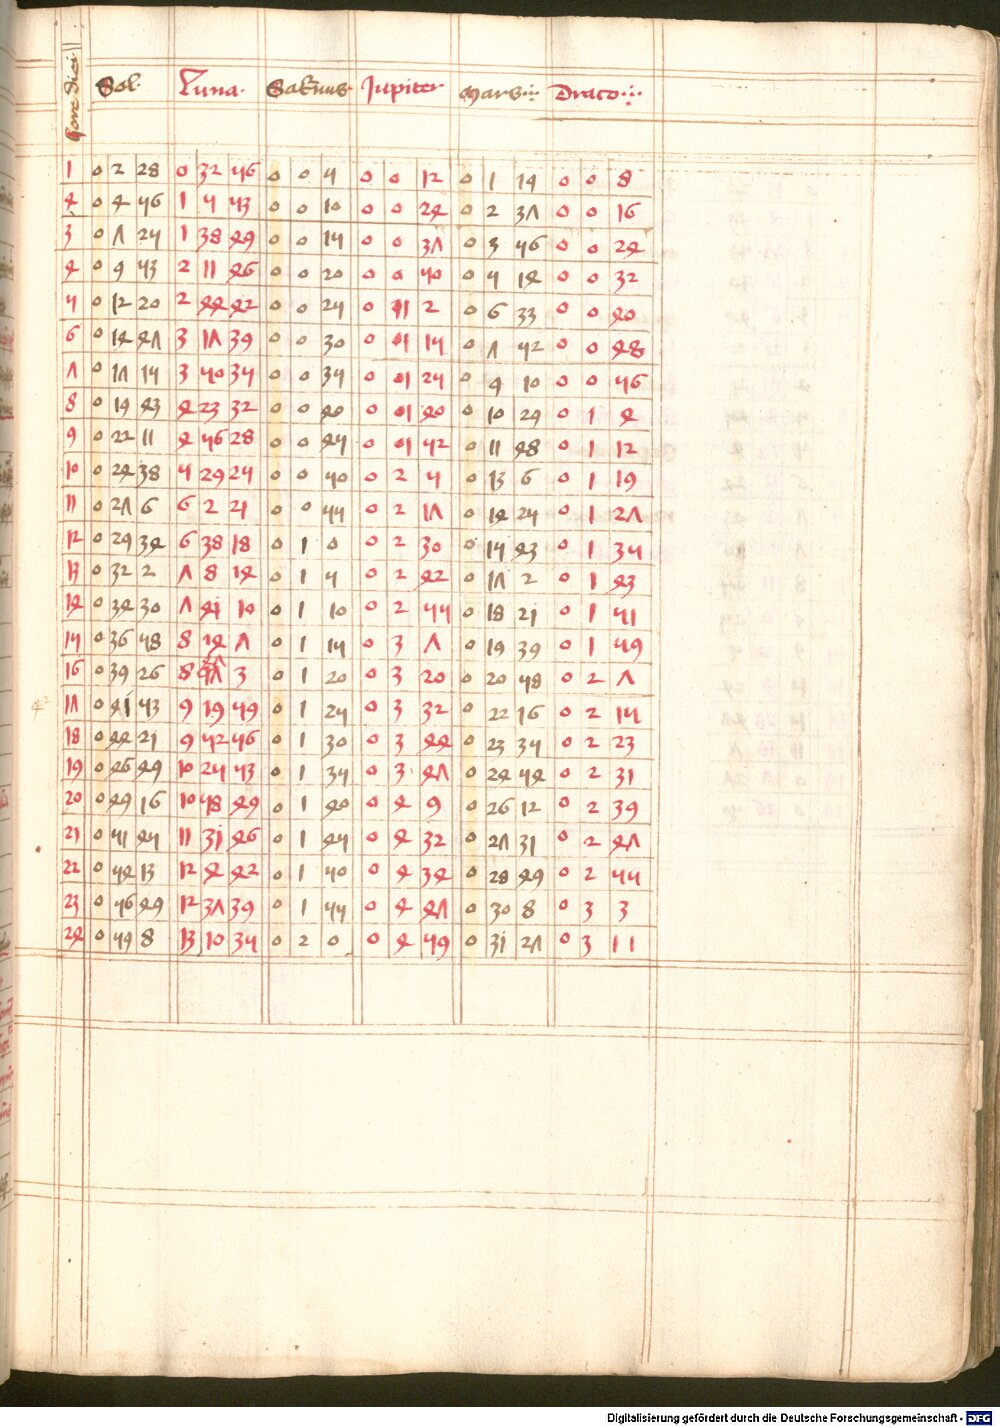 hore diei Sol. Luna. Saturnus Jupiter Mars Draco
1 0 2 28 0 32 56 0 0 5 0 0 12 0 1 19 0 0 8
2 0 4 56 1 5 53 0 0 10 0 0 24 0 2 37 0 0 16
3 0 7 25 1 38 49 0 0 15 0 0 37 0 3 56 0 0 24
4 0 9 53 2 11 46 0 0 20 0 0 50 0 5 14 0 0 32
5 0 12 20 2 44 42 0 0 25 0 1 2 0 6 33 0 0 40
6 0 14 47 3 17 39 0 0 30 0 1 15 0 7 52 0 0 48
7 0 17 15 3 50 35 0 0 35 0 1 25 0 9 10 0 0 56
8 0 19 43 4 23 32 0 0 40 0 1 40 0 10 29 0 1 4
9 0 22 11 4 56 28 0 0 45 0 1 52 0 11 48 0 1 12
10 0 24 38 5 29 25 0 0 50 0 2 5 0 13 6 0 1 19
11 0 27 6 6 2 21 0 0 55 0 2 17 0 14 25 0 1 27
12 0 29 34 6 38 18 0 1 0 0 2 30 0 15 43 0 1 35
13 0 32 2 7 8 14 0 1 5 0 2 42 0 17 2 0 1 43
14 0 34 30 7 41 10 0 1 10 0 2 55 0 18 21 0 1 51
15 0 36 58 8 14 7 0 1 15 0 3 7 0 19 39 0 1 59
16 0 39 26 8 47 3 0 1 20 0 3 20 0 20 58 0 2 7
17 0 41 53 9 19 59 0 1 25 0 3 32 0 22 16 0 2 15
18 0 44 21 9 52 56 0 1 30 0 3 44 0 23 35 0 2 23
19 0 46 49 10 25 53 0 1 35 0 3 47 0 24 54 0 2 31
20 0 49 16 10 58 49 0 1 40 0 4 9 0 26 12 0 2 39
21 0 51 45 11 31 46 0 1 45 0 4 32 0 27 31 0 2 47
22 0 54 13 12 4 42 0 1 50 0 4 34 0 28 49 0 2 55
23 0 56 49 12 37 39 0 1 55 0 4 47 0 30 8 0 3 3
24 0 59 8 13 10 35 0 2 0 0 4 59 0 31 27 0 3 11
Digitalisierung gefördert durch die Deutsche Forschungsgemeinschaft - DFG